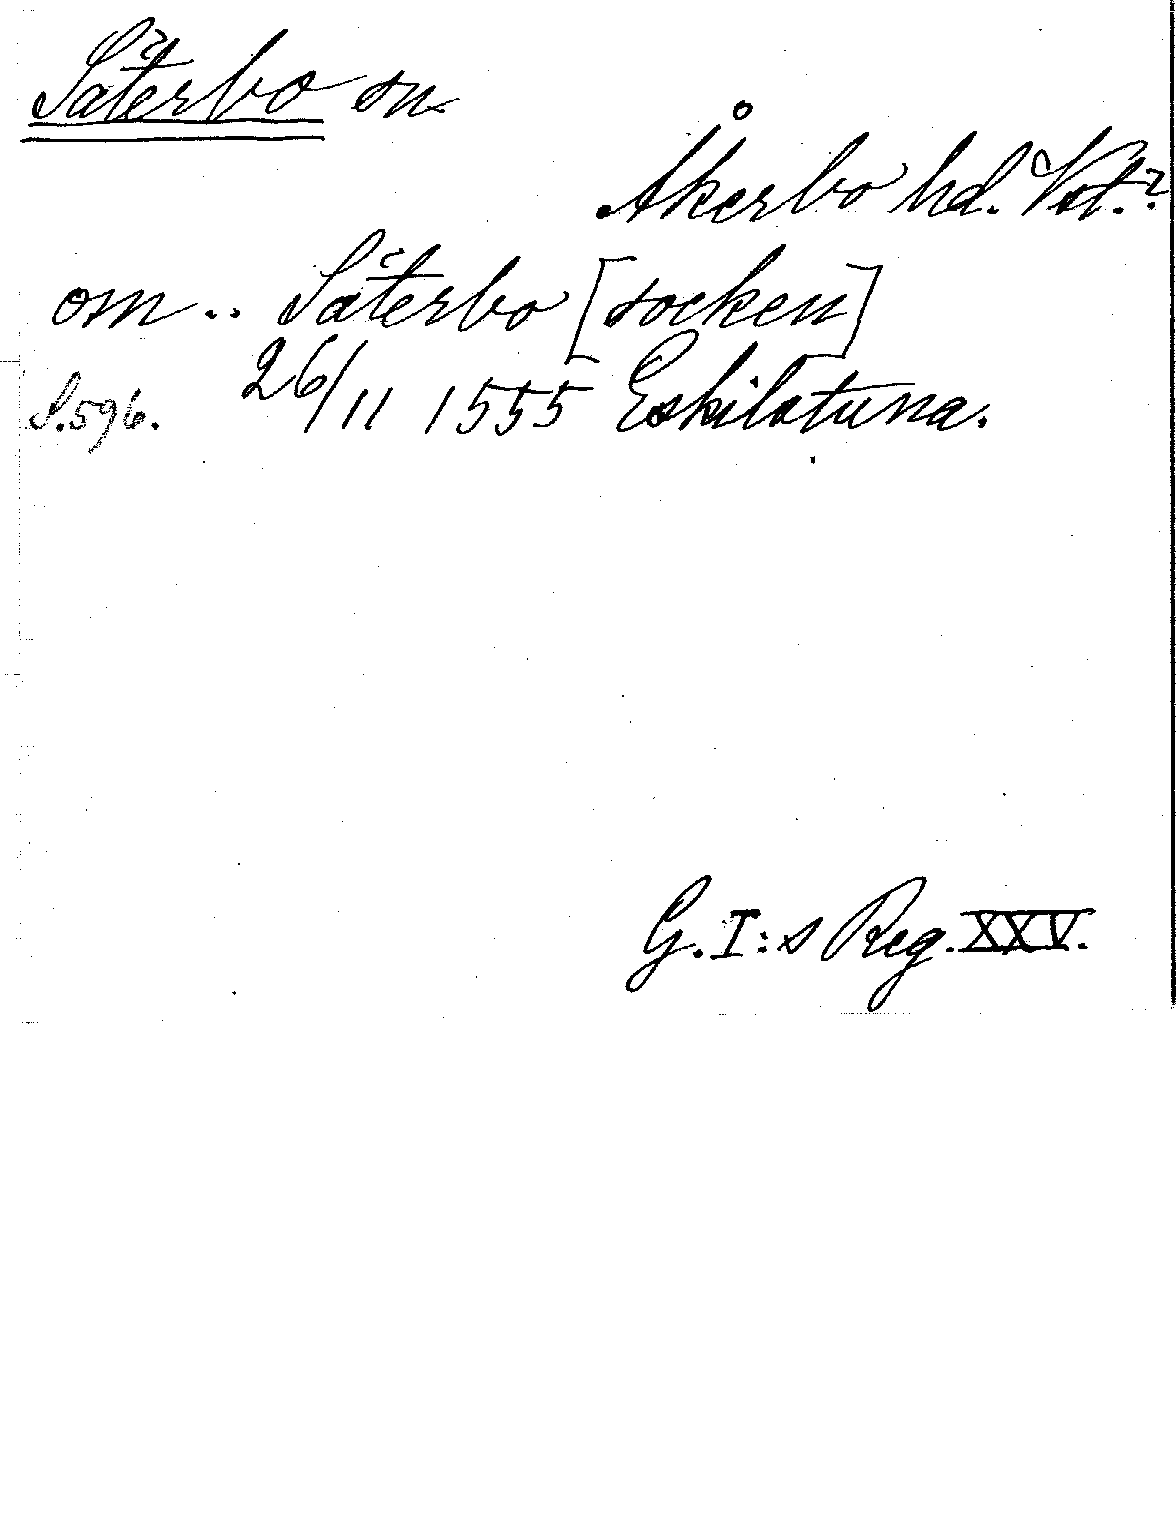 Säterbo sn
Åkerbo hd. Vstm.?
om .. Säterbo [socken]
S. 596. 26/11 1555 Eskilstuna.
G. I:s Reg. XXV.